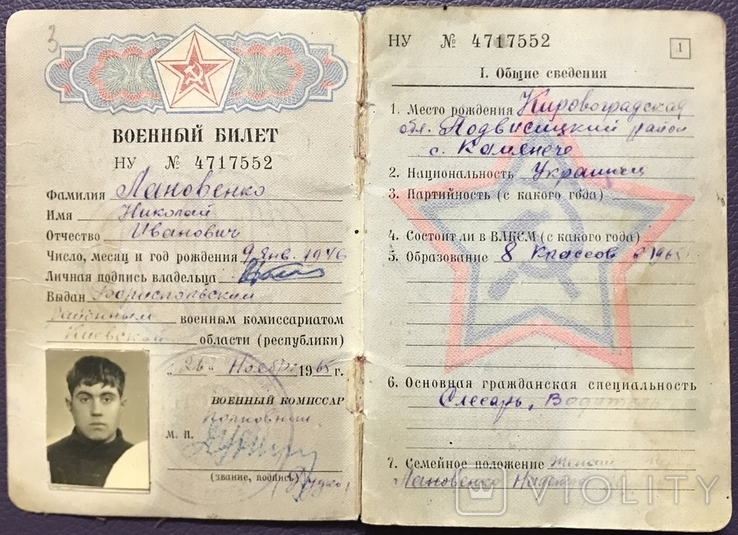 3
ВОЕННЫЙ БИЛЕТ
НУ № 4717552
Фамилия Лановенко
Имя Николай
Отчество Иванович
Число, месяц и год рождения 9 янв. 1946
Личная подпись владельца
Выдан Бориспольским
районным военным комиссариатом
Киевской области (республики)
"26" Ноября 1965 г.
ВОЕННЫЙ КОМИССАР
полковник
М. П.
(звание, подпись)
НУ № 4717552
1
I. Общие сведения
1. Место рождения Кировоградская
обл. Подвисоцкий район
с. Каменече
2. Национальность Украинец
3. Партийность (с какого года)
4. Состоит ли в ВЛКСМ (с какого года)
5. Образование 8 классов в 1965
6. Основная гражданская специальность
Слесарь, Водитель
7. Семейное положение Женат
Лановенко
VIOLITY